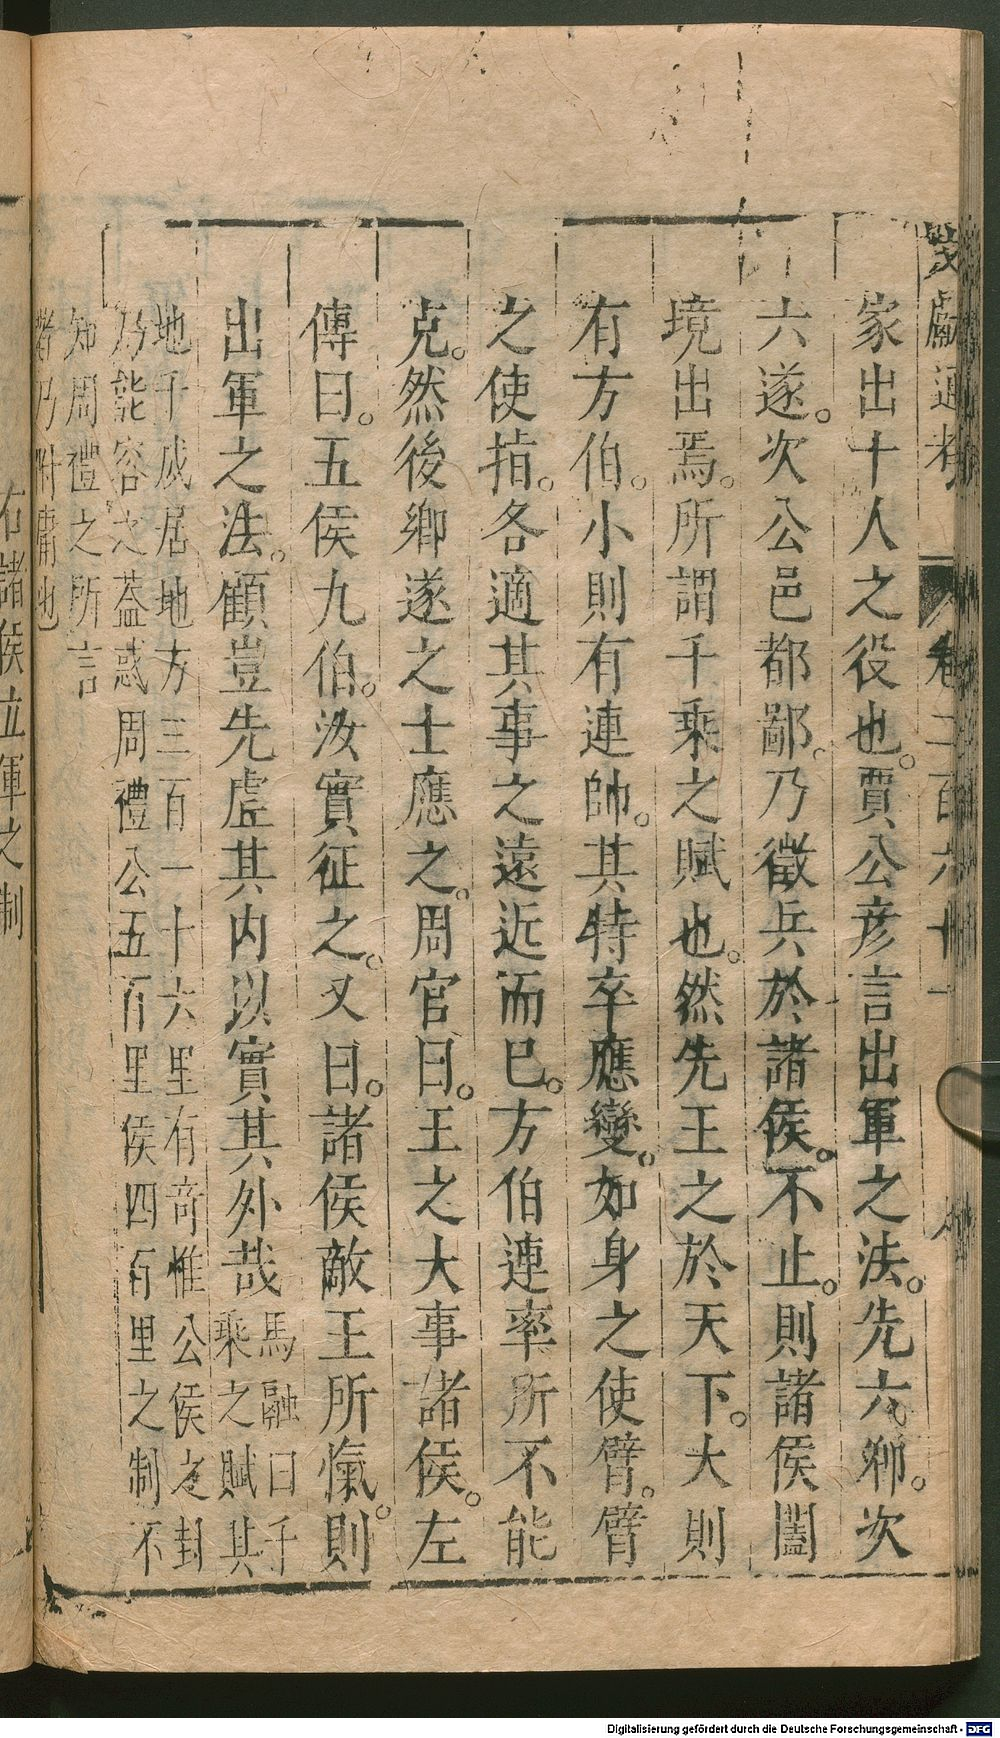 文獻通考 卷二百六十一
家出十人之役也。賈公彥言出軍之法。先六鄉。次
六遂。次公邑都鄙。乃徵兵於諸侯。不止。則諸侯闔
境出焉。所謂千乘之賦也。然先王之於天下。大則
有方伯。小則有連帥。其特卒應變。如身之使臂。臂
之使指。各適其事之遠近而已。方伯連率所不能
克。然後鄉遂之士應之。周官曰。王之大事諸侯。左
傳曰。五侯九伯。汝實征之。又曰。諸侯敵王所愾。則
出軍之法。顧豈先虛其內以實其外哉馬融曰千
乘之賦其
地千成居地方三百一十六里有奇惟公侯之封
乃能容之葢惑周禮公五百里侯四百里之制不
知周禮之所言
者乃附庸也
右諸侯立軍之制
Digitalisierung gefördert durch die Deutsche Forschungsgemeinschaft - DFG